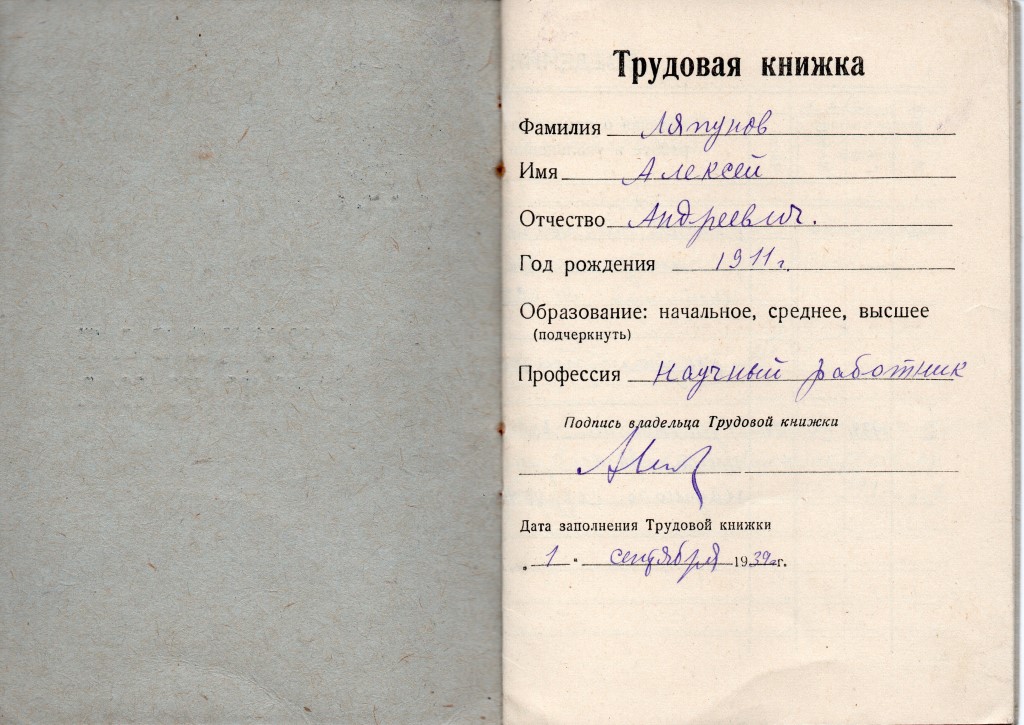 Трудовая книжка
Фамилия Ляпунов
Имя Алексей
Отчество Андреевич.
Год рождения 1911 г.
Образование: начальное, среднее, высшее
(подчеркнуть)
Профессия Научный работник
Подпись владельца Трудовой книжки
Дата заполнения Трудовой книжки
„ 1 " сентября 1939 г.